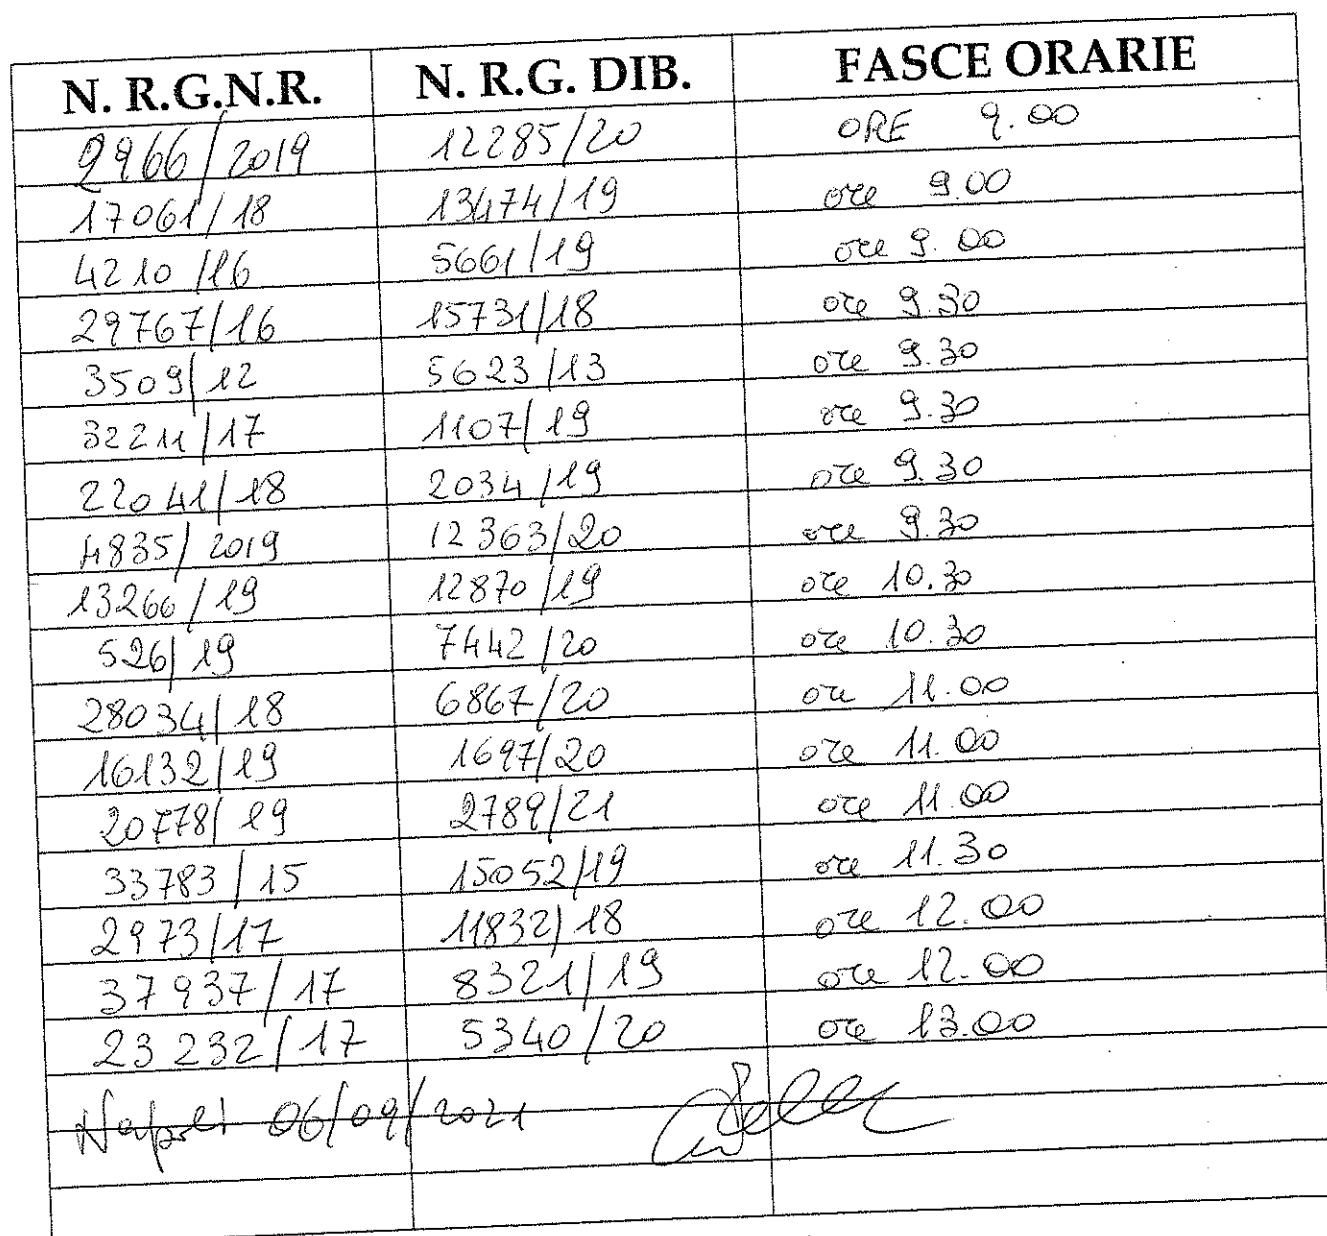 N. R.G.N.R. N. R.G. DIB. FASCE ORARIE
2966/2019 12285/20 ORE 9.00
17061/18 13474/19 ore 9.00
4210/16 5661/19 ore 9.00
29767/16 15731/18 ore 9.30
3509/12 5623/13 ore 9.30
32211/17 1107/19 ore 9.30
22041/18 2034/19 ore 9.30
4835/2019 12363/20 ore 9.30
13266/19 12870/19 ore 10.30
526/19 7442/20 ore 10.30
28034/18 6867/20 ore 11.00
16132/19 1697/20 ore 11.00
20778/19 2789/21 ore 11.00
33783/15 15052/19 ore 11.30
2973/17 11832/18 ore 12.00
37937/17 8321/19 ore 12.00
23232/17 5340/20 ore 13.00
Napoli 06/09/2021